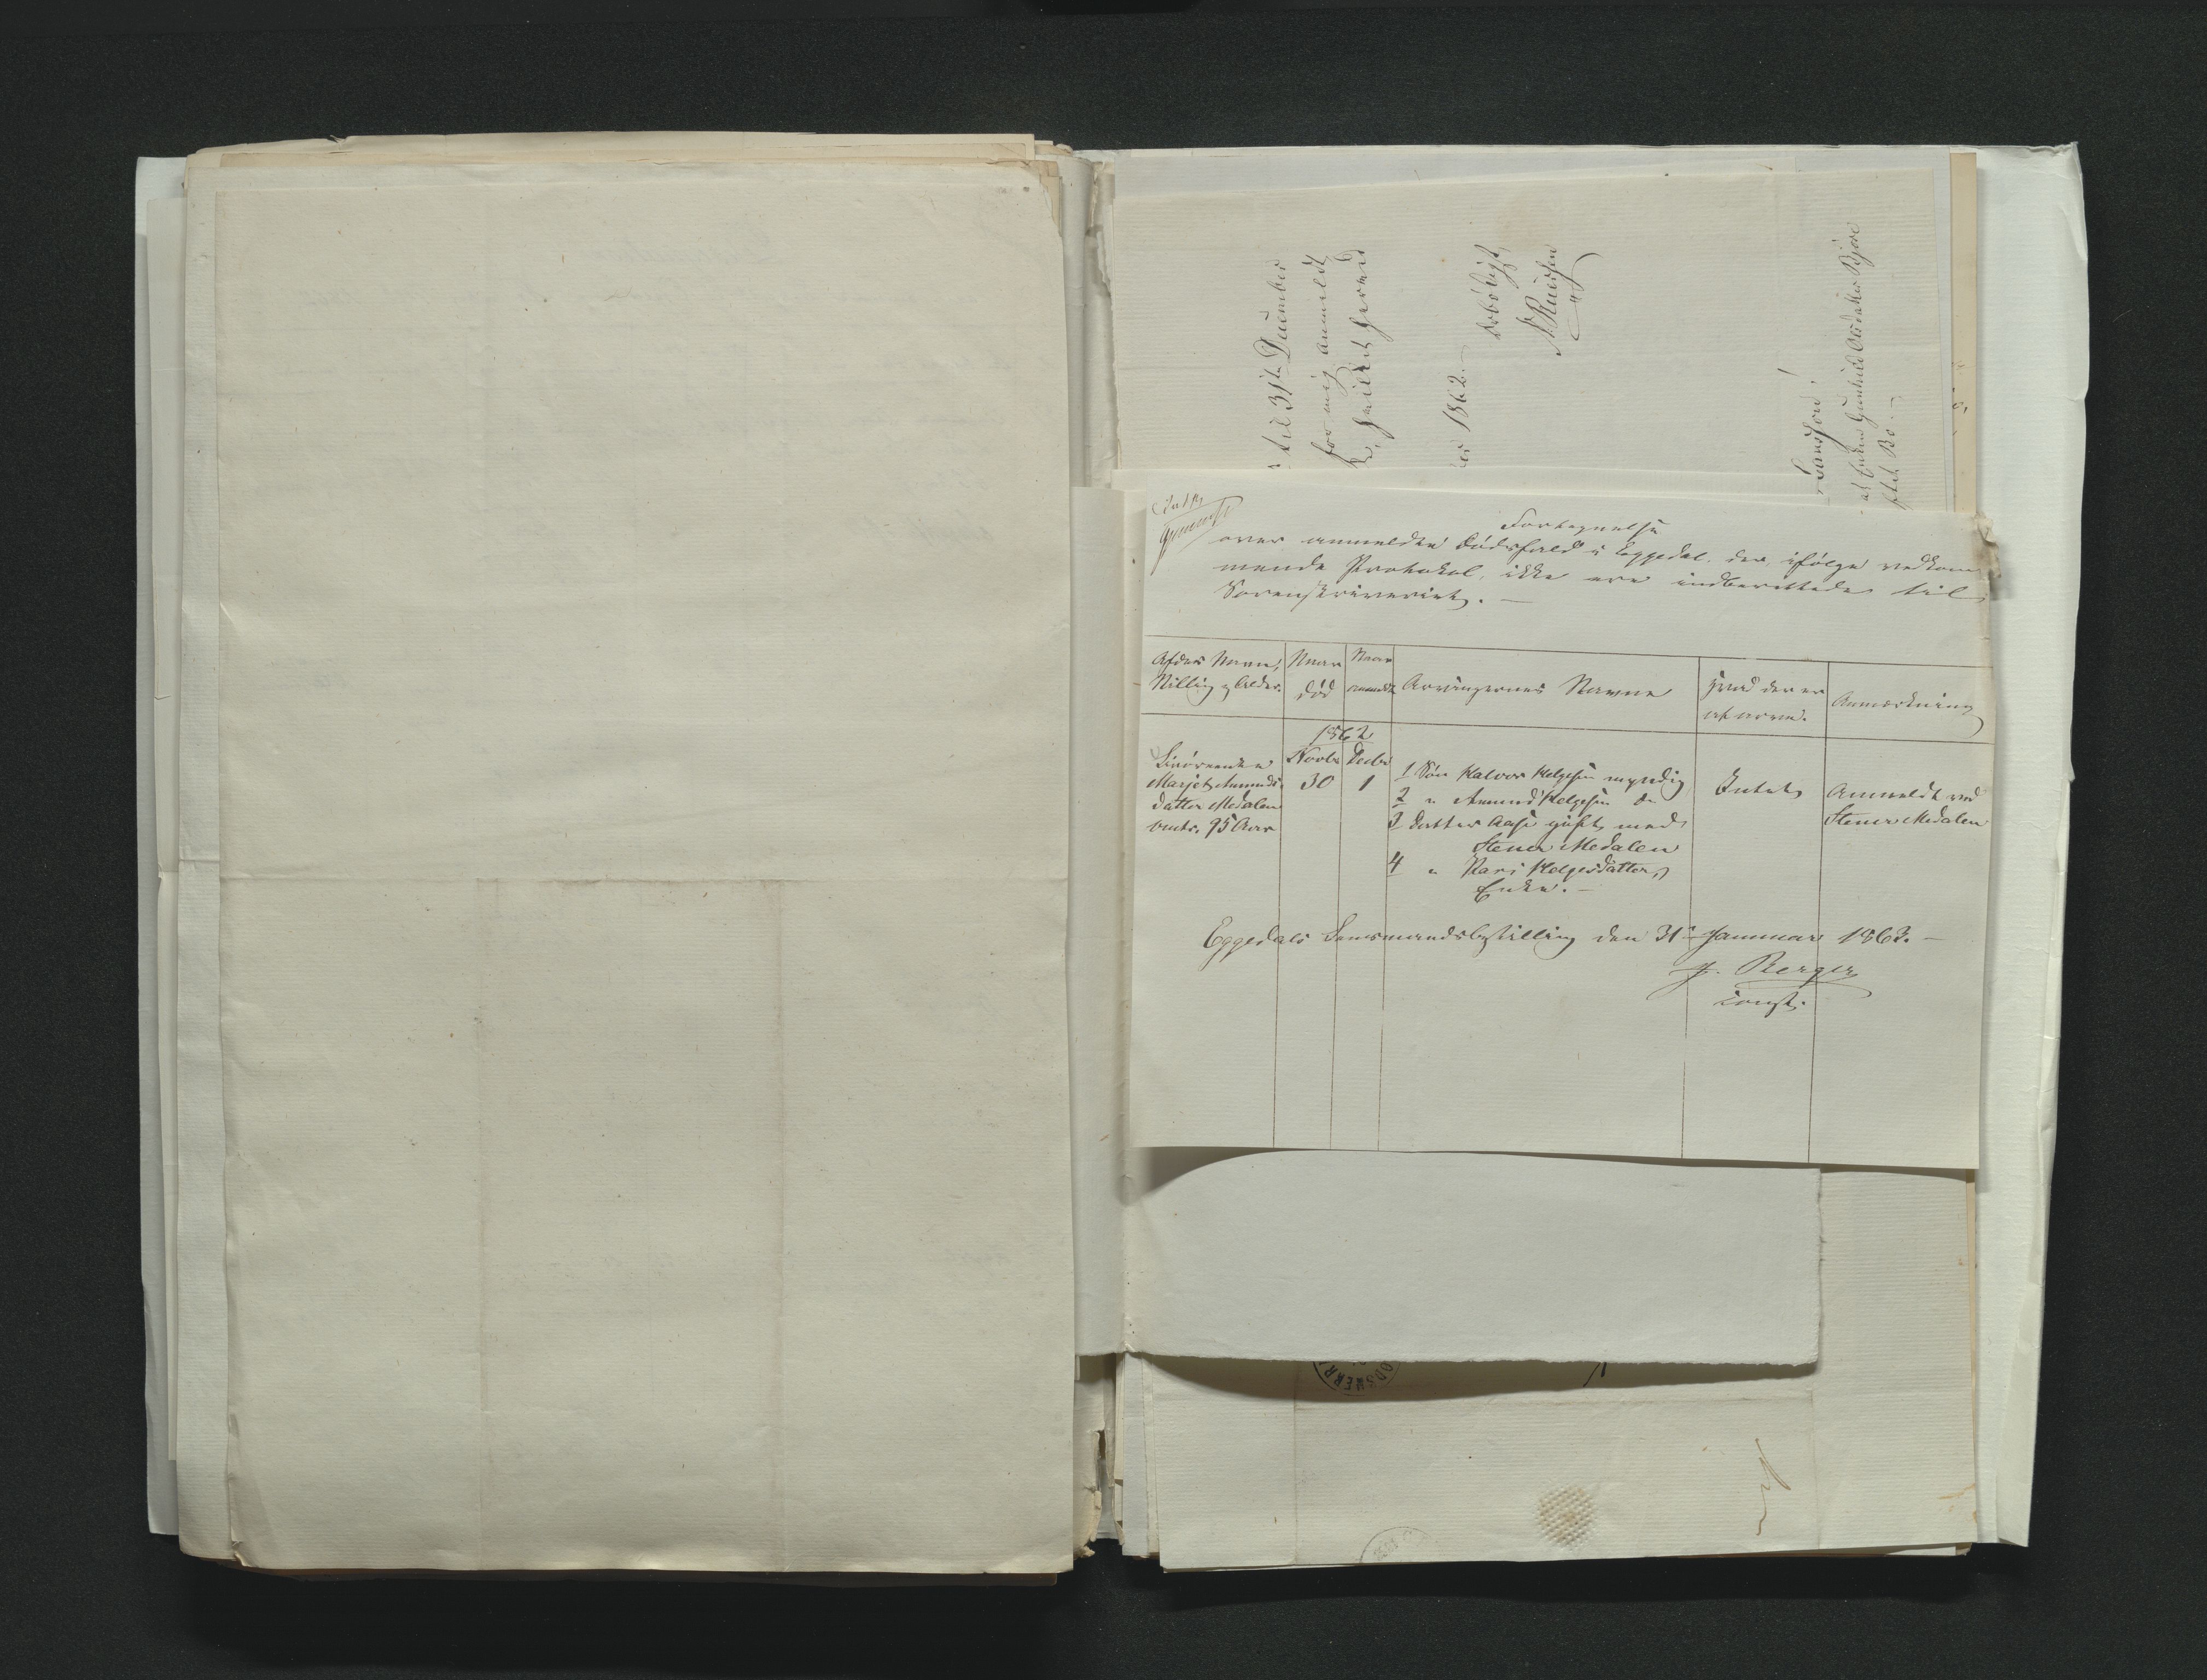 til 31te December
for mig anmeldt
1862.
Ærbødigst
at Enken Gunhild Olsdatter Bjøre
Bo.
Fortegnelse
over anmeldte Dødsfald i Eggedal, der, ifølge vedkom
mende Protokol, ikke ere indberettede til
Sorenskriveriet. —
Afdødes Navn,
Stilling og Alder.
Naar
død
Naar
anmeldt
Arvingernes Navne
Hvad der er
at arve.
Anmærkning
1862
Novbr
Decbr
30
1
Marjet Amunds-
datter Medalen
omtr. 95 Aar
1 Søn Halvor Helgesen myndig
2 " Amund Helgesen do
3 Datter Aase gift med
Stener Medalen
4 " Kari Helgesdatter,
Enke. —
Intet
Anmeldt ved
Stener Medalen
Eggedals Lensmandsbestilling den 31te Januar 1863. —
J. Berger
const.